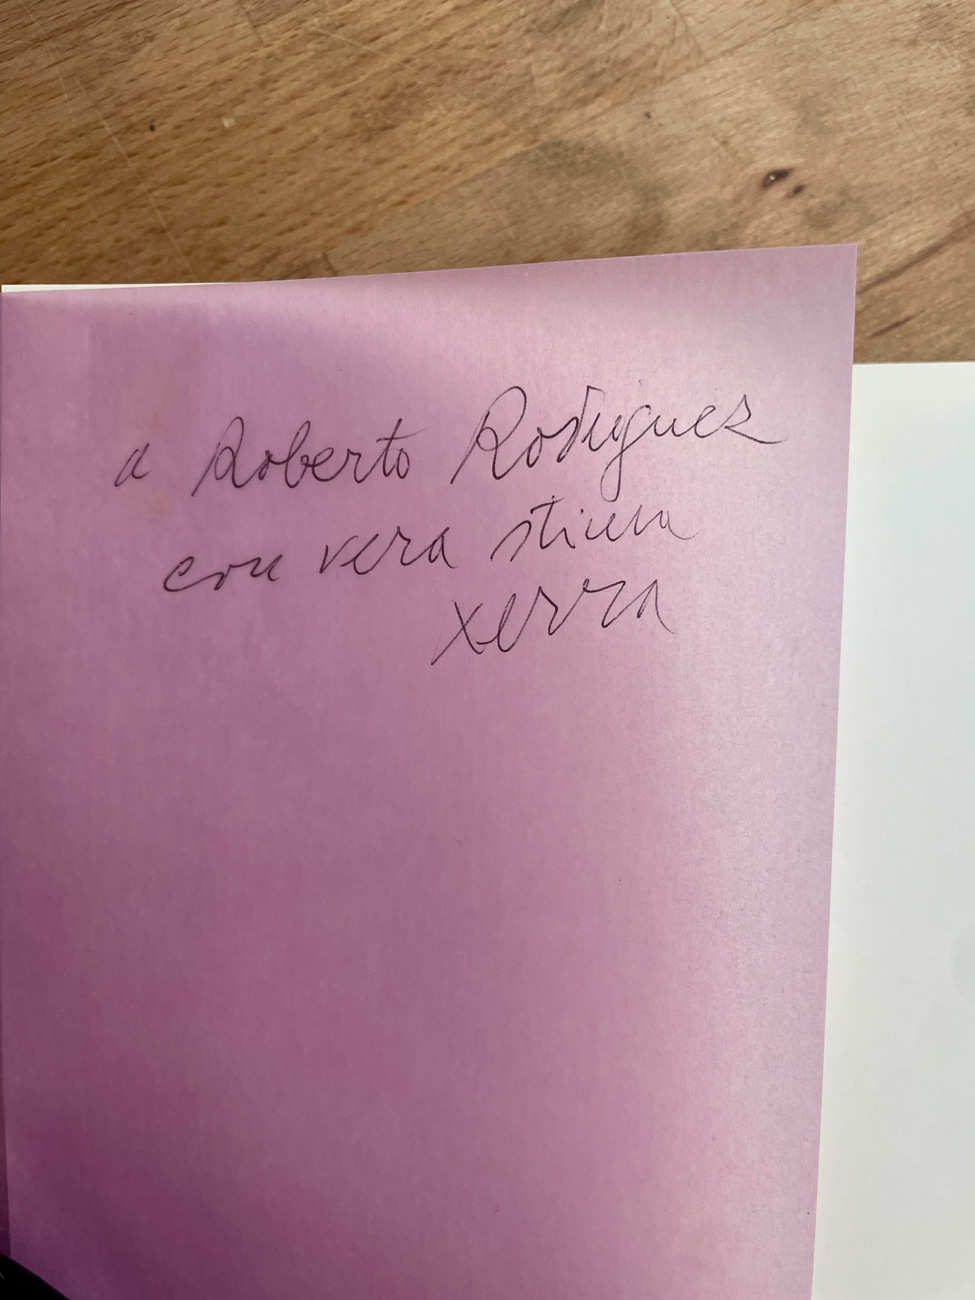 a Roberto Rodriguez
con vera stima
xerra